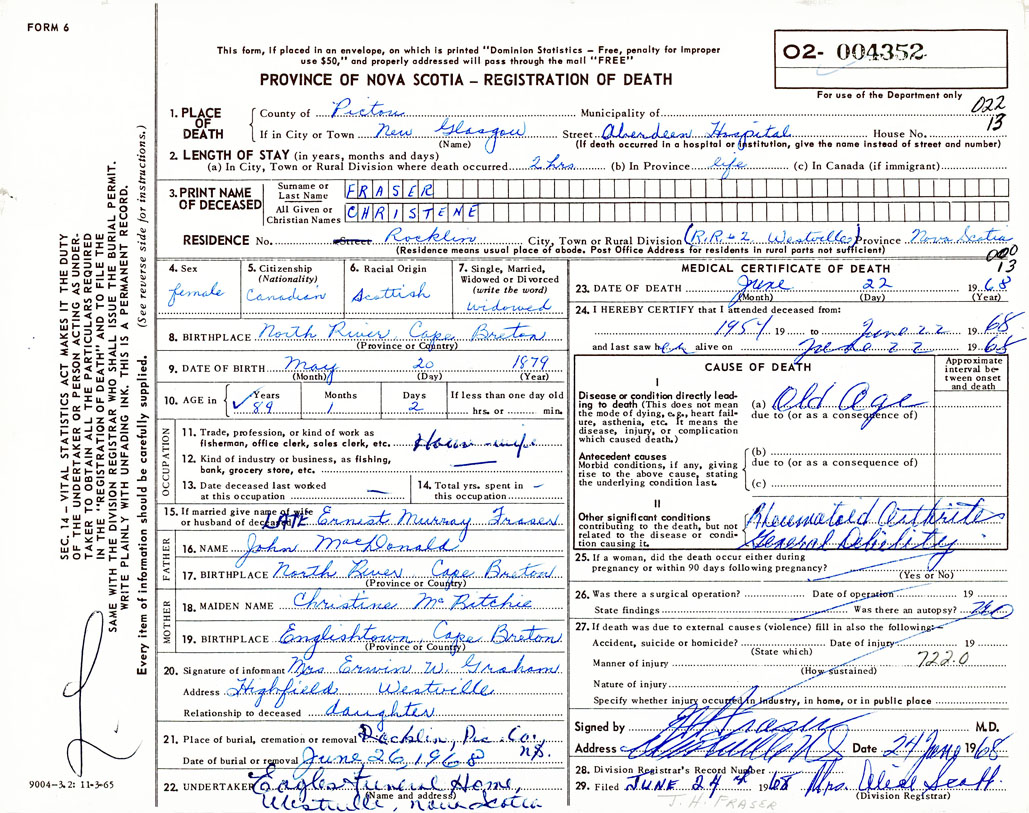 FORM 6
This form, if placed in an envelope, on which is printed "Dominion Statistics – Free, penalty for improper
use $50," and properly addressed will pass through the mail "FREE"
PROVINCE OF NOVA SCOTIA – REGISTRATION OF DEATH
02- 004352
For use of the Department only
022
13
1. PLACE OF DEATH
County of Pictou Municipality of
If in City or Town New Glasgow Street Aberdeen Hospital House No.
(Name) (If death occurred in a hospital or institution, give the name instead of street and number)
2. LENGTH OF STAY (in years, months and days)
(a) In City, Town or Rural Division where death occurred 2 hrs. (b) In Province life (c) In Canada (if immigrant)
3. PRINT NAME OF DECEASED
Surname or Last Name FRASER
All Given or Christian Names CHRISTENE
RESIDENCE No. Street Rocklin City, Town or Rural Division (R.R.#2 Westville) Province Nova Scotia
(Residence means usual place of abode. Post Office Address for residents in rural parts not sufficient)
000
13
4. Sex
female
5. Citizenship
(Nationality)
Canadian
6. Racial Origin
Scottish
7. Single, Married,
Widowed or Divorced
(write the word)
widowed
8. BIRTHPLACE North River Cape Breton
(Province or Country)
9. DATE OF BIRTH May 20 1879
(Month) (Day) (Year)
10. AGE in
Years 89
Months 1
Days 2
If less than one day old
hrs. or min.
OCCUPATION
11. Trade, profession, or kind of work as
fisherman, office clerk, sales clerk, etc. House-wife
12. Kind of industry or business, as fishing,
bank, grocery store, etc. —
13. Date deceased last worked
at this occupation —
14. Total yrs. spent in
this occupation —
15. If married give name of wife
or husband of deceased LATE Ernest Murray Fraser
FATHER
16. NAME John MacDonald
17. BIRTHPLACE North River Cape Breton
(Province or Country)
MOTHER
18. MAIDEN NAME Christine McRitchie
19. BIRTHPLACE Englishtown, Cape Breton
(Province or Country)
20. Signature of informant Mrs Erwin W. Graham
Address Highfield Westville
Relationship to deceased daughter
21. Place of burial, cremation or removal Rocklin, Pic. Co. N.S.
Date of burial or removal June 26, 1968
22. UNDERTAKER Eagles Funeral Home,
(Name and address)
Westville, Nova Scotia
MEDICAL CERTIFICATE OF DEATH
23. DATE OF DEATH June 22 1968
(Month) (Day) (Year)
24. I HEREBY CERTIFY that I attended deceased from:
1954 19 to June 22 1968
and last saw her alive on June 22 1968
CAUSE OF DEATH
Approximate
interval between
onset
and death
I
Disease or condition directly leading
to death (This does not mean
the mode of dying, e.g., heart failure,
asthenia, etc. It means the
disease, injury, or complication
which caused death.)
(a) Old Age
due to (or as a consequence of)
Antecedent causes
Morbid conditions, if any, giving
rise to the above cause, stating
the underlying condition last.
(b)
due to (or as a consequence of)
(c)
II
Other significant conditions
contributing to the death, but not
related to the disease or condition
causing it.
Rheumatoid Arthrites
General Debility
25. If a woman, did the death occur either during
pregnancy or within 90 days following pregnancy?
(Yes or No)
26. Was there a surgical operation? Date of operation 19
State findings Was there an autopsy? no
27. If death was due to external causes (violence) fill in also the following:–
Accident, suicide or homicide? Date of injury 19
(State which)
722.0
Manner of injury
(How sustained)
Nature of injury
Specify whether injury occurred in industry, in home, or in public place
Signed by M.D.
Address Westville NS Date 24 June 1968
28. Division Registrar's Record Number
29. Filed JUNE 24th 1968 Mrs.
(Division Registrar)
J. H. FRASER
SEC. 14 – VITAL STATISTICS ACT MAKES IT THE DUTY
OF THE UNDERTAKER OR PERSON ACTING AS UNDERTAKER
TO OBTAIN ALL THE PARTICULARS REQUIRED
IN THE "REGISTRATION OF DEATH" AND TO FILE THE
SAME WITH THE DIVISION REGISTRAR WHO SHALL ISSUE THE BURIAL PERMIT.
WRITE PLAINLY WITH UNFADING INK. THIS IS A PERMANENT RECORD.
Every item of information should be carefully supplied. (See reverse side for instructions.)
9004–3.2: 11-3-65